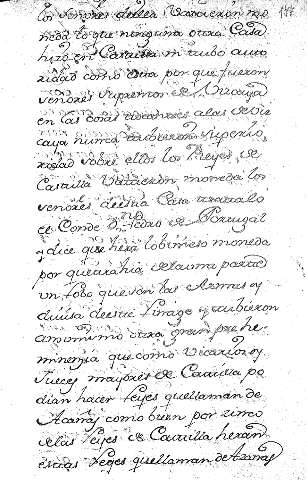 los señores de ella Vatieron mo
neda lo que ninguna otra Casa
hizo en Castilla ni tubo auto
ridad como esta por que fueron
señores Supremos de Vizcaya
en las cosas tocantes a las de Viz
caya nunca tubieron superio
ridad sobre ellos los Reyes de
Castilla Vatieron moneda los
señores de esta Casa trátalo
el Conde Dn Pedro de Portugal
y dice que hera lobinieso moneda
por que trahia de la una parte
un lobo que son las Armas y
divisa de este linage y tubieron
asimismo otra gran pre he
minenzia que como Vicarios y
Jueces mayores de Castilla po
dian hacer leyes que llaman de
Azañas como bien por zinco
de las Reyes de Castilla heran
estas leyes que llaman de Azañas